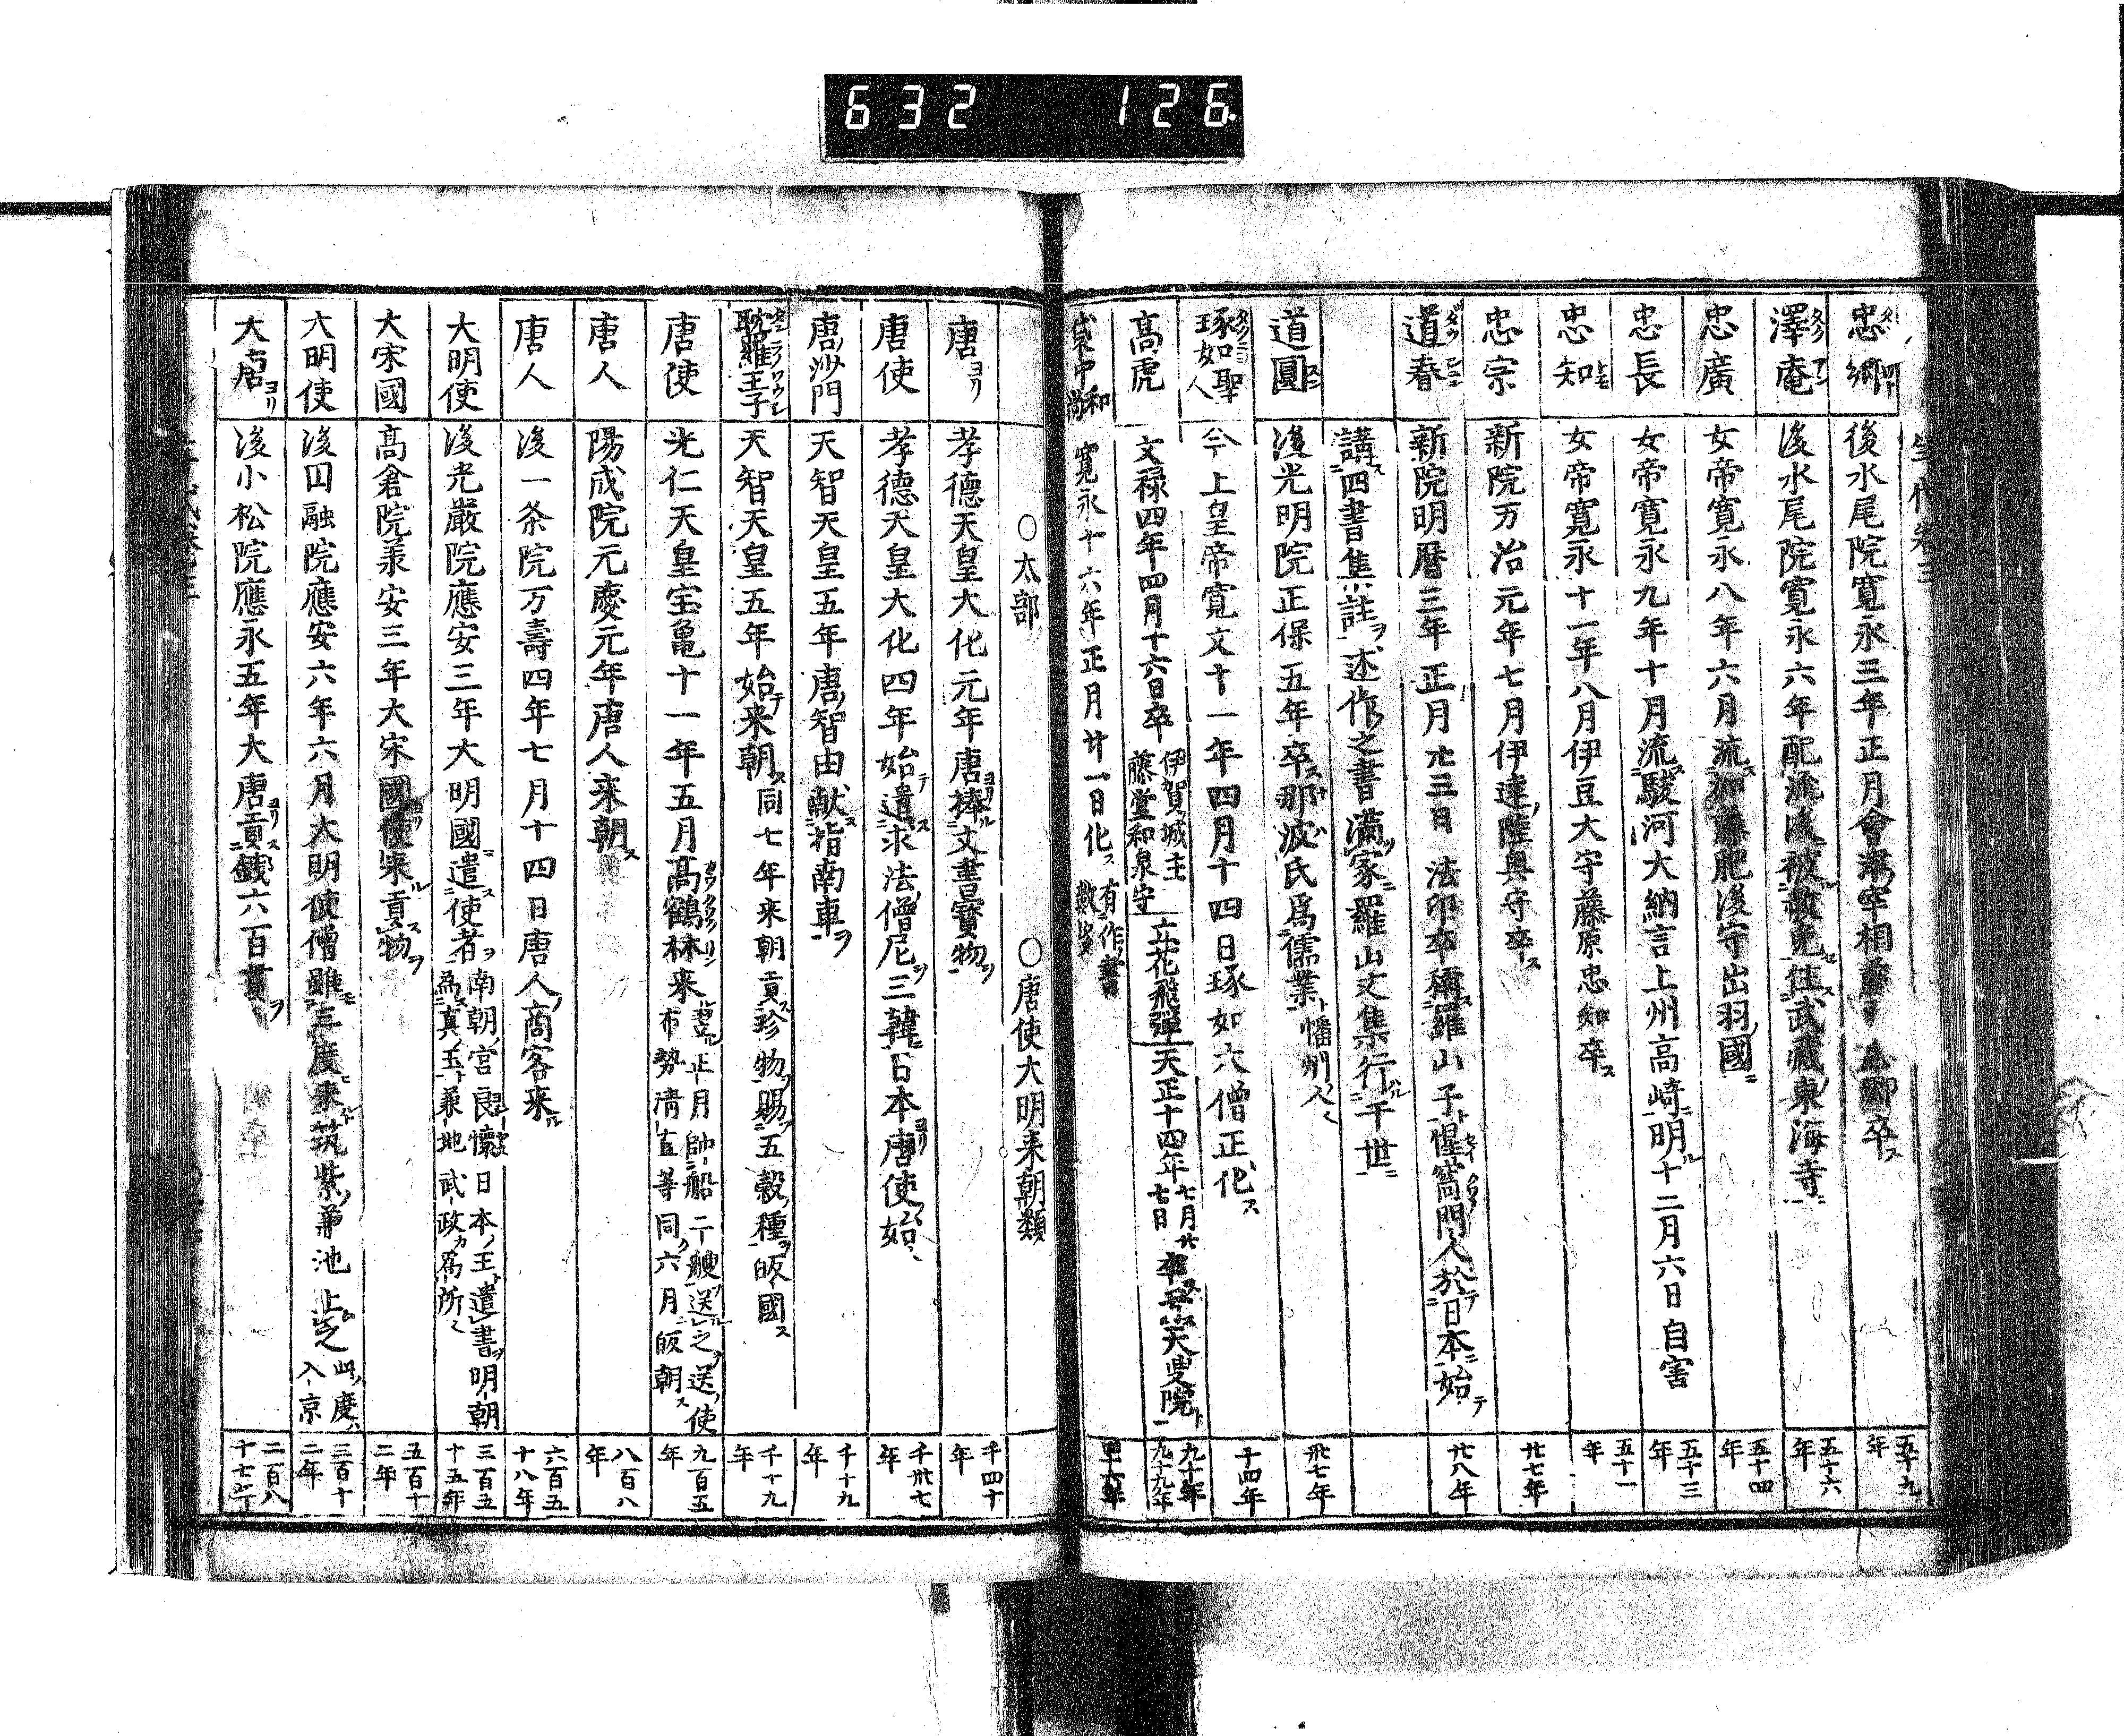 632 126
忠郷 後水尾院寛永三年正月會津宰相 卒ス 五十九年
澤庵 後水尾院寛永六年配流後被赦免住武蔵東海寺 五十六年
忠廣 女帝寛永八年六月流加藤肥後守出羽國 五十四年
忠長 女帝寛永九年十月流駿河大納言上州高崎明十二月六日自害 五十三年
忠知 女帝寛永十一年八月伊豆大守藤原忠知卒ス 五十一年
忠宗 新院万治元年七月伊達陸奥守卒ス 廿七年
道春 新院明暦三年正月廿三日法印卒稱羅山子惺窩門人於日本始テ 廿八年
講四書集註述作之書満家羅山文集行于世
道圓 後光明院正保五年卒ス那波氏為儒業幡州人 卅七年
琢如聖人 今上皇帝寛文十一年四月十四日琢如大僧正化ス 十四年
高虎 文禄四年四月十六日卒 伊賀城主藤堂和泉守 九十年
立花飛弾 天正十四年七月廿七日卒 天叟院 九十九年
袋中和尚 寛永十六年正月廿一日化ス 有作書數巻
○太部 ○唐使大明来朝類
唐ヨリ 孝德天皇大化元年唐ヨリ捧文書寳物ヲ 千四十年
唐使 孝德天皇大化四年始テ遣求法僧尼三韓日本唐使始 千卅七年
唐沙門 天智天皇五年唐智由献指南車ヲ 千十九年
耽羅王子 天智天皇五年始テ来朝ス同七年来朝貢珍物賜五穀種皈國ス 千十九年
唐使 光仁天皇宝亀十一年五月高鶴林来 正月帥船二艘送之送使布勢清直等同六月皈朝ス 九百五年
唐人 陽成院元慶元年唐人来朝ス 八百八年
唐人 後一条院万壽四年七月十四日唐人商客来 六百五十八年
大明使 後光嚴院應安三年大明國遣使者 南朝宮良懷日本王遣書明朝為真王兼地武政為所 三百五十五年
大宋國 高倉院承安三年大宋國使来貢物ヲ 五百十二年
大明使 後円融院應安六年六月大明使僧雖三度来筑紫 池止之此度入京 三百十二年
大唐ヨリ 後小松院應永五年大唐ヨリ貢錢六百貫ヲ 二百八十七年